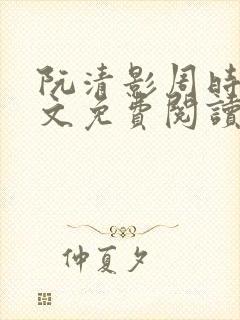 阮清影周時
文免費閱讀
仲夏夕